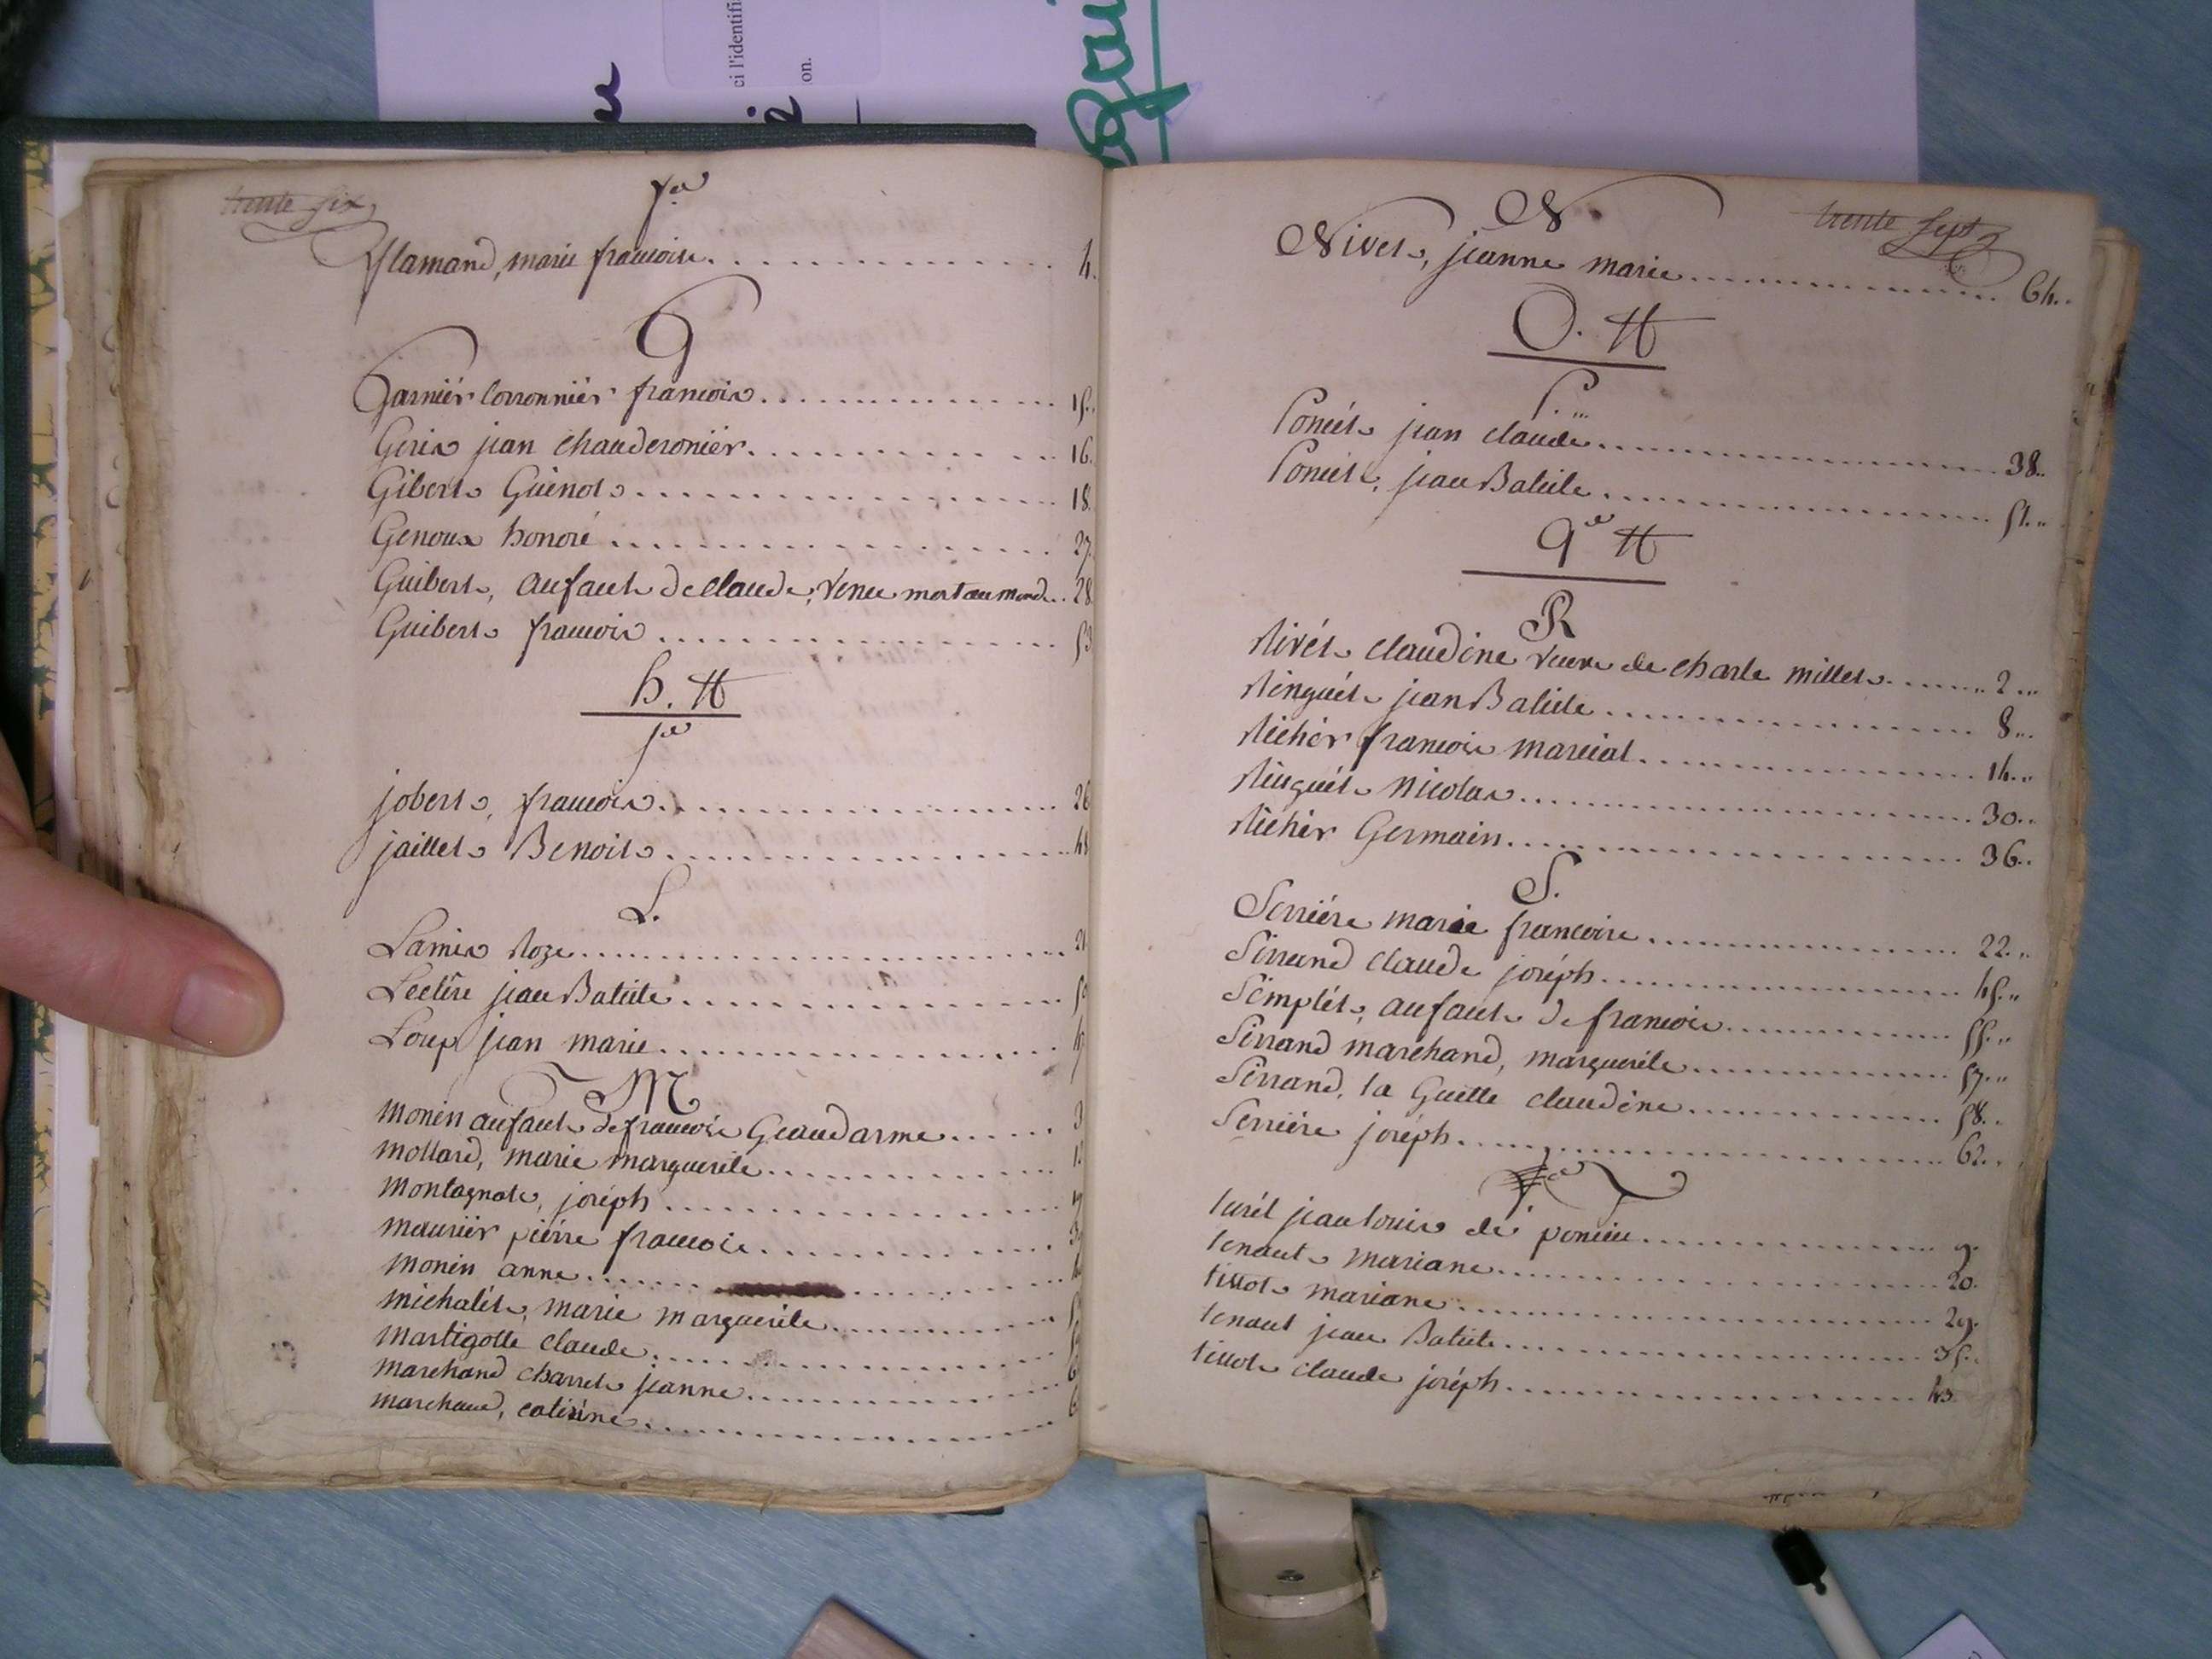 ci l'identifi
on.
trente six
f.
flamand, marie francoise. . . . . . . . . . . . . 4.
G
Garniér Corronniér francois. . . . . . . . . . . . 15.
Geria jean chauderoniér. . . . . . . . . . . 16.
Gibert Guenot. . . . . . . . . . . . . . . . 18.
Genoux honoré . . . . . . . . . . . . . . . 27.
Guibert, anfant de claude, venu mort au monde. . 28
Guibert francois . . . . . . . . . . . . . . 53
h. #
j
jobert, francois. . . . . . . . . . . . . . . 26
jaillet Benoit. . . . . . . . . . . . . . . . 48
L.
Lamia Roze. . . . . . . . . . . . . . . . . . 21
Leclére jean Batiste. . . . . . . . . . . . .
Loup jean marie. . . . . . . . . . . . . . .
M
monin anfant de francois Geandarme. . . . . . 3
mollard, marie marguerite. . . . . . . . . . . 12
montagnat, joséph . . . . . . . . . . . . . .
mauriér piérre francois. . . . . . . . . . . .
monin anne. . . . . . . . . . . . . .
michalét, marie marguerite. . . . . . . . . .
martigolle claude. . . . . . . . . . . . . .
marchand charret jeanne. . . . . . . . . . . . 6
marchand, catirine. . . . . . . . . . . . . . 6
trente sept
N
Nivet, jeanne marie. . . . . . . . . . . . . . 64..
O. #
P.
Poncét jean claude. . . . . . . . . . . . . . 38..
Poncét, jean Batiste. . . . . . . . . . . . . 51..
q #
R
Rivét claudine veuve de charle millet. . . . . 2...
Ringuét jean Batiste. . . . . . . . . . . . . 8...
Richér francois marcial. . . . . . . . . . . . 14..
Ringuét Nicolas. . . . . . . . . . . . . . . . 30..
Richér Germain. . . . . . . . . . . . . . . . 36..
S.
Serriére marie francoise. . . . . . . . . . . . 22..
Sirrand claude joséph. . . . . . . . . . . . . 45..
Simplét, anfant de francois. . . . . . . . . . 55..
Sirrand marchand, marguerite. . . . . . . . . . 57..
Sirrand, la Guette claudine. . . . . . . . . . 58..
Serriére joséph. . . . . . . . . . . . . . . . 62..
T
turél jean louis de poncin. . . . . . . . . . . 9.
tenaut mariane. . . . . . . . . . . . . . . . 20.
tissot mariane. . . . . . . . . . . . . . . . 29.
tenaut jean Batiste. . . . . . . . . . . . . . 35.
tissot claude joséph. . . . . . . . . . . . . 43.